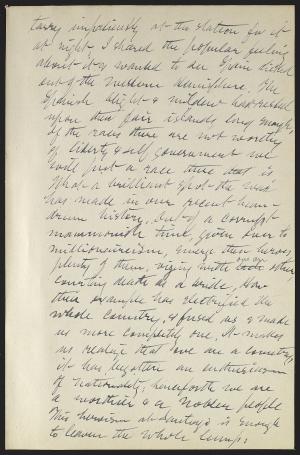 tarry imperiously at the station for it
at night. I shared the popular feeling
about it & wanted to see Spain kicked
out of the western hemisphere. The
Spanish blight & mildew has rested
upon those fair islands long enough,
if the races there are not worthy
of liberty & self government we
will put a race there that is
What a brilliant spot the war
has made in our recent hum-
drum history. Out of a corrupt
mammonish time, given over to
millionaireism, emerge these heroes,
plenty of them, vieing with one another
courting death as a bride. How
their example has electrified the
whole country, & fused us & made
us more completely one. It makes
us realize that we are a country,
it has begotten an enthusiasm
of nationality, henceforth we are
a worthier & a nobler people
This heroism at Santiago is enough
to leaven the whole lump.